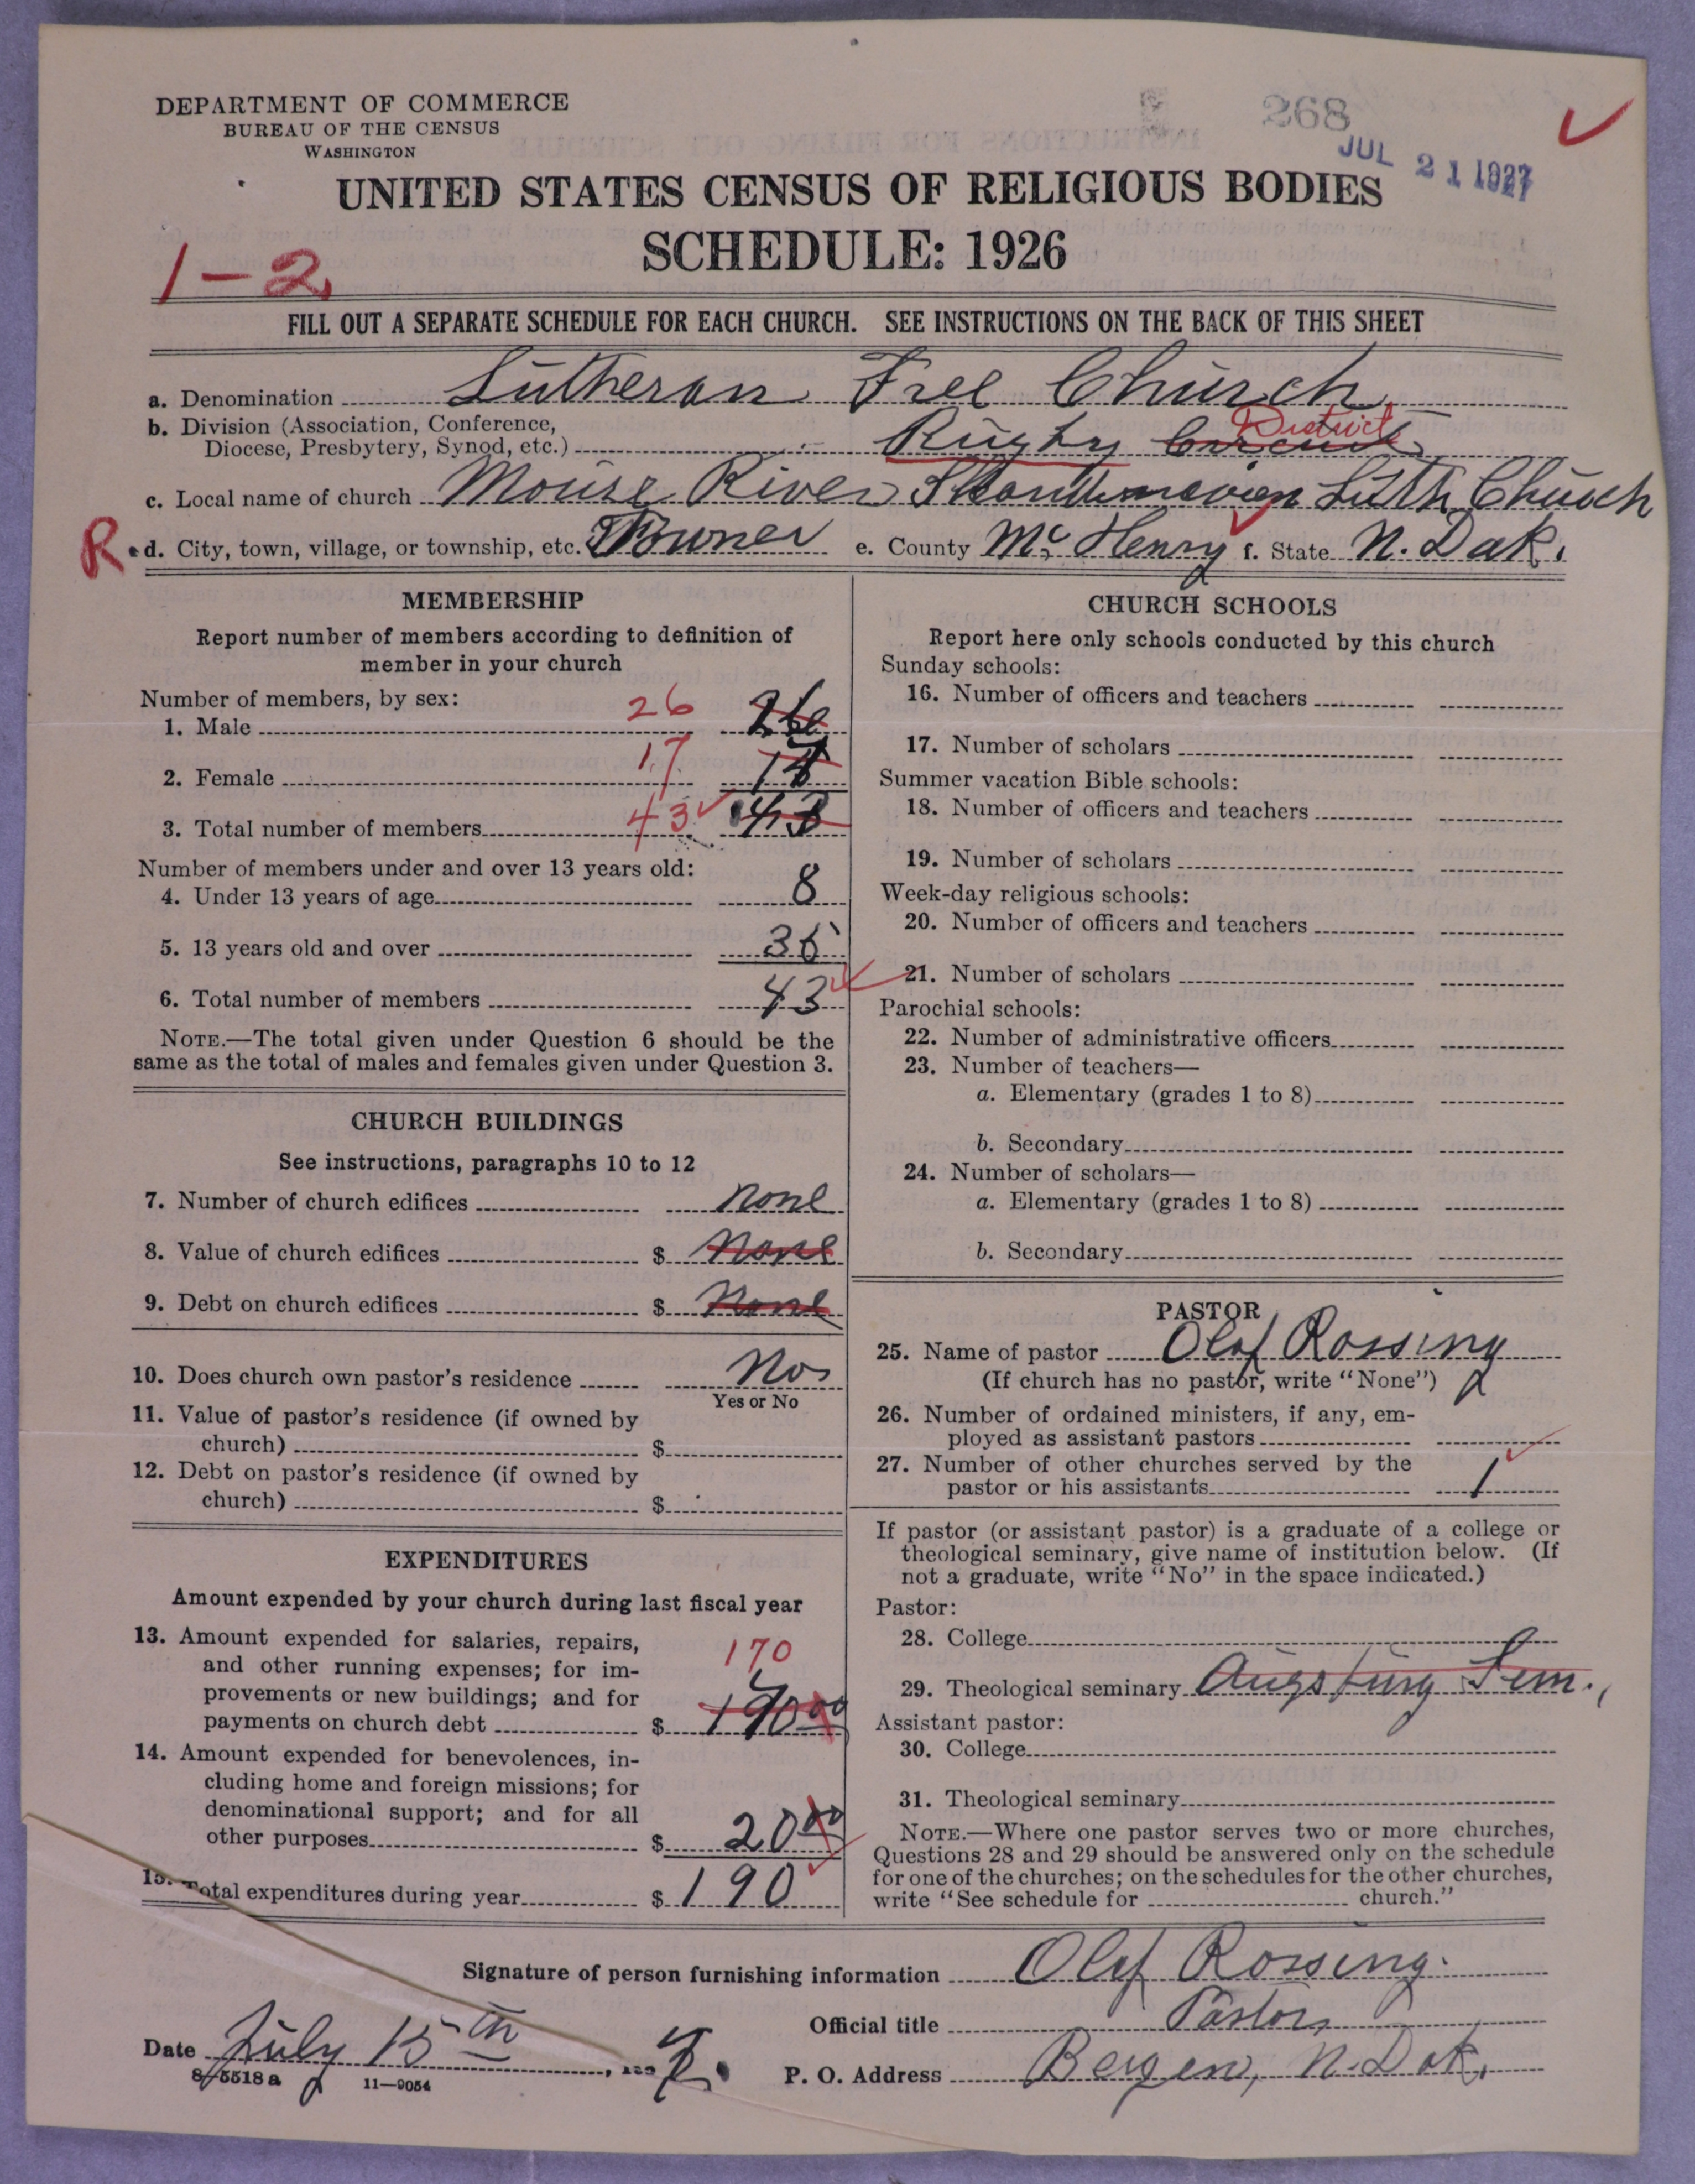 DEPARTMENT OF COMMERCE
BUREAU OF THE CENSUS
WASHINGTON
268
JUL 21 1927
UNITED STATES CENSUS OF RELIGIOUS BODIES
SCHEDULE: 1926
1-2
FILL OUT A SEPARATE SCHEDULE FOR EACH CHURCH. SEE INSTRUCTIONS ON THE BACK OF THIS SHEET
a. Denomination Lutheran Free Church
b. Division (Association, Conference,
Diocese, Presbytery, Synod, etc.) Rugby Circuit District
c. Local name of church Mouse River Skandinavien Luth Church
R d. City, town, village, or township, etc. Towner e. County McHenry f. State N. Dak.
MEMBERSHIP
Report number of members according to definition of
member in your church
Number of members, by sex:
1. Male 26 26
2. Female 17
3. Total number of members 43 43
Number of members under and over 13 years old:
4. Under 13 years of age 8
5. 13 years old and over 35
6. Total number of members 43
NOTE.—The total given under Question 6 should be the
same as the total of males and females given under Question 3.
CHURCH BUILDINGS
See instructions, paragraphs 10 to 12
7. Number of church edifices none
8. Value of church edifices $ none
9. Debt on church edifices $ none
10. Does church own pastor's residence No
Yes or No
11. Value of pastor's residence (if owned by
church) $
12. Debt on pastor's residence (if owned by
church) $
EXPENDITURES
Amount expended by your church during last fiscal year
13. Amount expended for salaries, repairs,
and other running expenses; for im-
provements or new buildings; and for
payments on church debt $ 170 170 00
14. Amount expended for benevolences, in-
cluding home and foreign missions; for
denominational support; and for all
other purposes $ 20 00
15. Total expenditures during year $ 190
CHURCH SCHOOLS
Report here only schools conducted by this church
Sunday schools:
16. Number of officers and teachers
17. Number of scholars
Summer vacation Bible schools:
18. Number of officers and teachers
19. Number of scholars
Week-day religious schools:
20. Number of officers and teachers
21. Number of scholars
Parochial schools:
22. Number of administrative officers
23. Number of teachers—
a. Elementary (grades 1 to 8)
b. Secondary
24. Number of scholars—
a. Elementary (grades 1 to 8)
b. Secondary
PASTOR
25. Name of pastor Olaf Rossing
(If church has no pastor, write "None")
26. Number of ordained ministers, if any, em-
ployed as assistant pastors
27. Number of other churches served by the
pastor or his assistants 1
If pastor (or assistant pastor) is a graduate of a college or
theological seminary, give name of institution below. (If
not a graduate, write "No" in the space indicated.)
Pastor:
28. College
29. Theological seminary Augsburg Sem.,
Assistant pastor:
30. College
31. Theological seminary
NOTE.—Where one pastor serves two or more churches,
Questions 28 and 29 should be answered only on the schedule
for one of the churches; on the schedules for the other churches,
write "See schedule for church."
Signature of person furnishing information Olaf Rossing.
Official title Pastor
Date July 15th, 7.
P. O. Address Bergen, N. Dak.
8-5518 a 11-9054